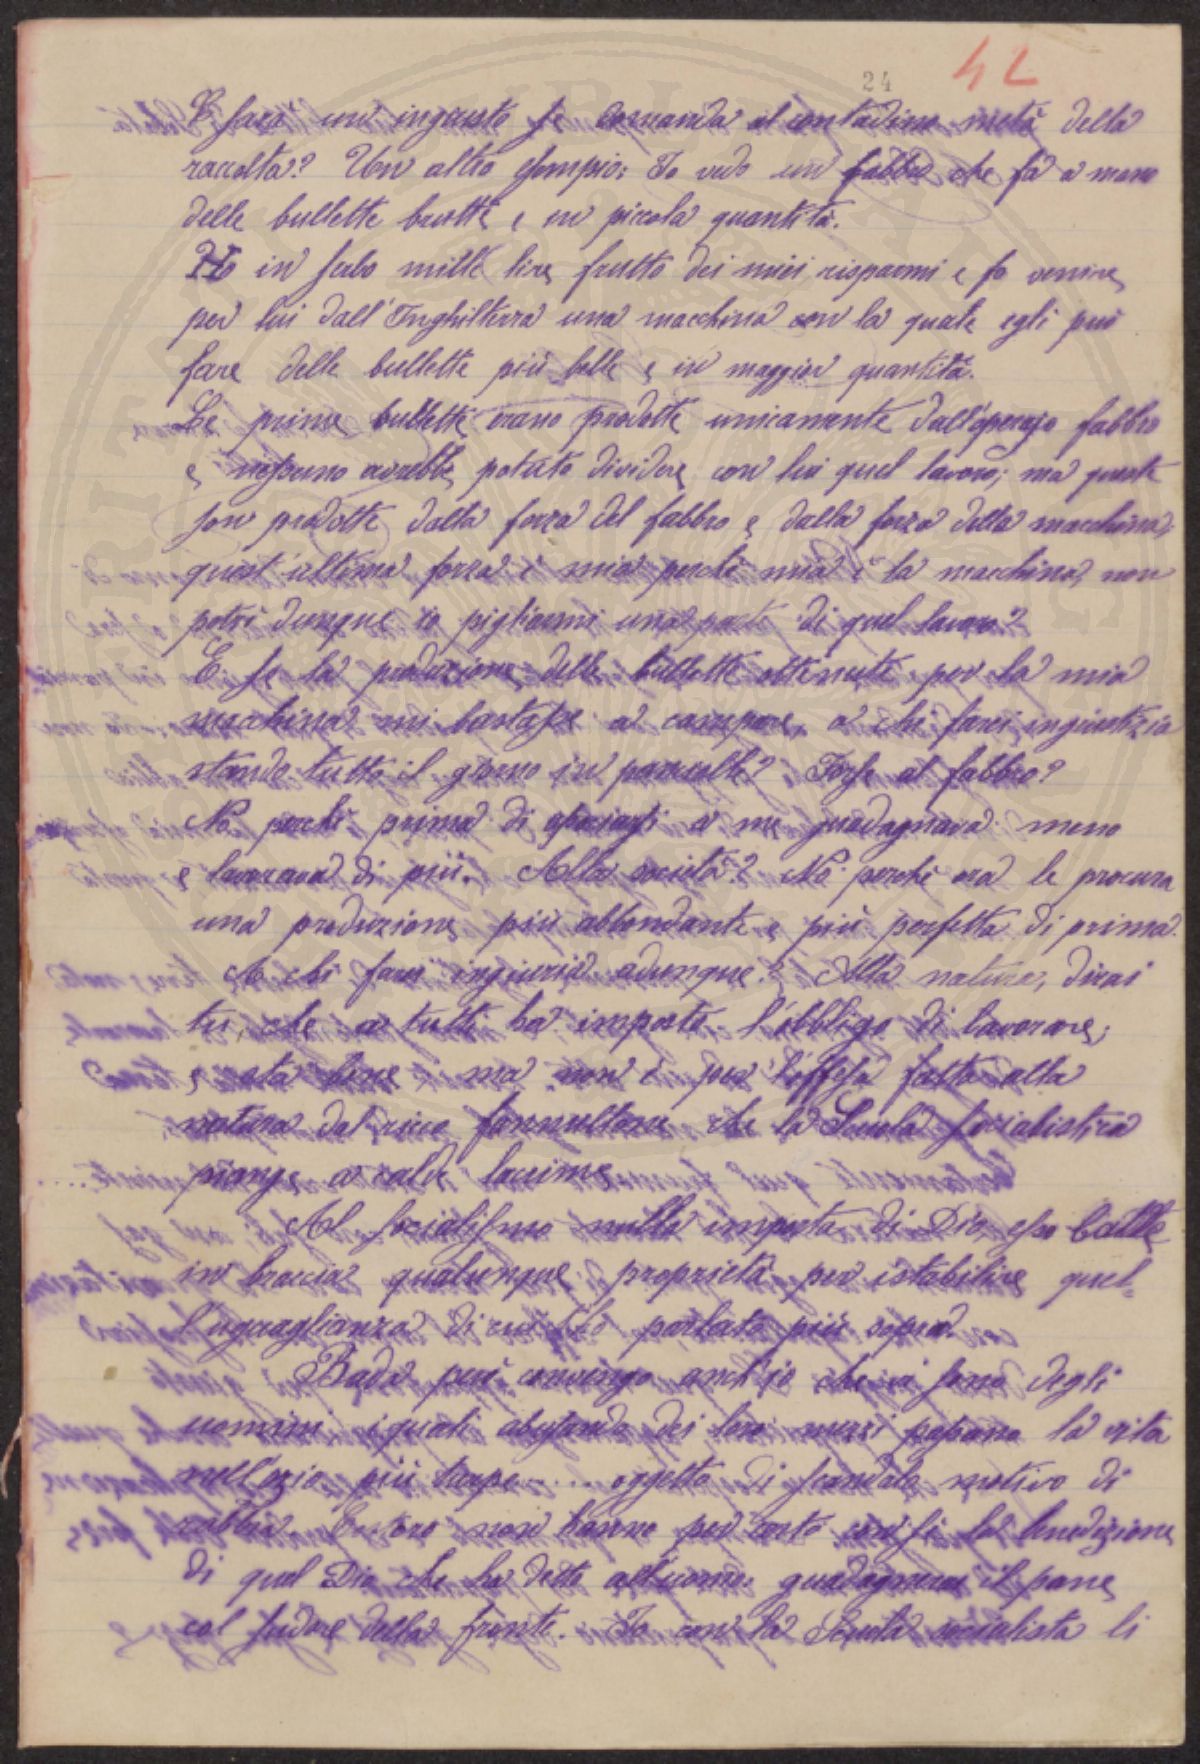 24
42
E sarà un ingiusto se domanda al contadino metà della
raccolta? Un altro esempio: Io vedo un fabbro che fa a mano
delle bullette brutte e in piccola quantità.
Ho in serbo mille lire frutto dei miei risparmi e fo venire
per lui dall'Inghilterra una macchina con la quale egli può
fare delle bullette più belle e in maggior quantità.
Le prime bullette erano prodotte unicamente dall'operaio fabbro
e nessuno avrebbe potuto dividere con lui quel lavoro; ma queste
son prodotte dalla forza del fabbro e dalla forza della macchina,
quest'ultima forza è mia perchè mia è la macchina, non
potrò dunque io pigliarmi una parte di quel lavoro?
E se la produzione delle bullette ottenute per la mia
macchina mi bastasse a campare, a chi farei ingiustizia
stando tutto il giorno in panciolle? Forse al fabbro?
No perchè prima di associarsi a me guadagnava meno
e lavorava di più. Alla società? No perchè ora le procura
una produzione più abbondante e più perfetta di prima.
A chi farei ingiuria adunque? Alla natura, dirai
tu, che a tutti ha imposto l'obbligo di lavorare;
e sta bene ma non è per l'offesa fatta alla
natura dal ricco fannullone che la Scuola socialistica
piange a calde lacrime
Al socialismo nulla importa di Dio, esso batte
in breccia qualunque proprietà per istabilire quel-
l'uguaglianza di cui ho parlato più sopra.
Bada però convengo anch'io che vi sono degli
uomini i quali abusando dei loro mezzi passano la vita
nell'ozio più turpe .... oggetto di scandalo motivo di
rabbia. Costoro non hanno per certo con sè la benedizione
di quel Dio che ha detto all'uomo: guadagnerai il pane
col sudore della fronte. Io con la Scuola socialista li